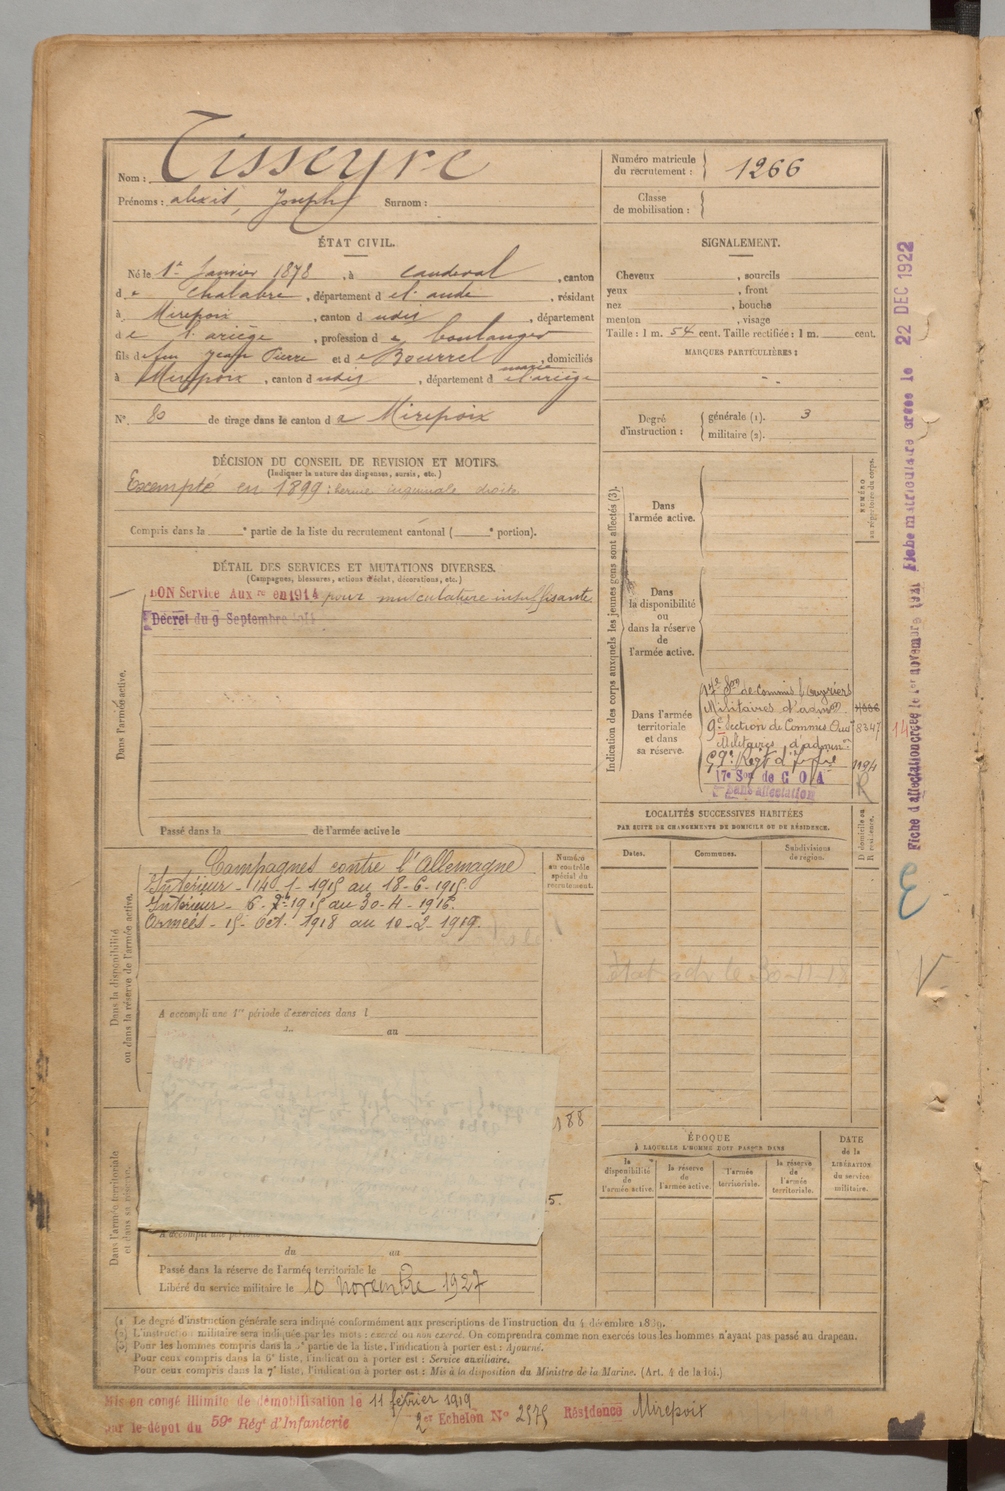 Nom : Tisseyre
Prénoms : alexis, Joseph Surnom :
Numéro matricule du recrutement : 1266
Classe de mobilisation :
ÉTAT CIVIL.
Né le 1er Janvier 1878, à Caudeval, canton
de Chalabre, département de l'aude, résidant
à Mirepoix, canton dudit, département
de l'ariège, profession de boulanger
fils de feu Jean Pierre et de Bourrel marie, domiciliés
à Mirepoix, canton dudit, département de l'ariège
N° 80 de tirage dans le canton de Mirepoix
DÉCISION DU CONSEIL DE REVISION ET MOTIFS.
(Indiquer la nature des dispenses, sursis, etc.)
Exempté en 1899 : hernie inguinale droite
Compris dans la e partie de la liste du recrutement cantonal ( e portion).
DÉTAIL DES SERVICES ET MUTATIONS DIVERSES.
(Campagnes, blessures, actions d'éclat, décorations, etc.)
BON Service Aux re en 1914 pour musculature insuffisante
Décret du 9 Septembre 1914
Dans l'armée active.
Passé dans la de l'armée active le
Dans la disponibilité ou dans la réserve de l'armée active.
Campagnes contre l'Allemagne
Intérieur - 14-1-1915 au 18-6-1915
Intérieur - 6-7-1915 au 30-4-1916.
Armées - 15 Oct. 1918 au 10-2-1919.
Numéro au contrôle spécial du recrutement.
A accompli une 1re période d'exercices dans l
au
188
5.
Dans l'armée territoriale et dans sa réserve.
du au
Passé dans la réserve de l'armée territoriale le
Libéré du service militaire le 10 novembre 1927
SIGNALEMENT.
Cheveux , sourcils
yeux , front
nez , bouche
menton , visage
Taille : 1 m. 54 cent. Taille rectifiée : 1 m. cent.
MARQUES PARTICULIÈRES :
Degré d'instruction : générale (1). 3
militaire (2).
Indication des corps auxquels les jeunes gens sont affectés (3).
NUMÉRO au répertoire du corps.
Dans l'armée active.
Dans la disponibilité ou dans la réserve de l'armée active.
Dans l'armée territoriale et dans sa réserve.
17e Son de Commis Ouvriers
Militaires d'admon
9e Section de Commis Ouv 8347
Militaires d'admin
59e Regt d'Infie 1194
17e Son de C O A R
Sans affectation
LOCALITÉS SUCCESSIVES HABITÉES
PAR SUITE DE CHANGEMENTS DE DOMICILE OU DE RÉSIDENCE.
Dates. Communes. Subdivisions de région. D domicile ou R résidence.
ÉPOQUE
À LAQUELLE L'HOMME DOIT PASSER DANS
la disponibilité de l'armée active. la réserve de l'armée active. l'armée territoriale. la réserve de l'armée territoriale.
DATE de la LIBÉRATION du service militaire.
Fiche d'affectation créée le 1er novembre 1921 Fiche matriculaire créée le 22 DEC 1922
14
(1) Le degré d'instruction générale sera indiqué conformément aux prescriptions de l'instruction du 4 décembre 1889.
(2) L'instruction militaire sera indiquée par les mots : exercé ou non exercé. On comprendra comme non exercés tous les hommes n'ayant pas passé au drapeau.
(3) Pour les hommes compris dans la 5e partie de la liste, l'indication à porter est : Ajourné.
Pour ceux compris dans la 6e liste, l'indication à porter est : Service auxiliaire.
Pour ceux compris dans la 7e liste, l'indication à porter est : Mis à la disposition du Ministre de la Marine. (Art. 4 de la loi.)
Mis en congé illimité de démobilisation le 11 février 1919
par le dépôt du 59e Régt d'Infanterie 2er Echelon N° 2575 Résidence Mirepoix